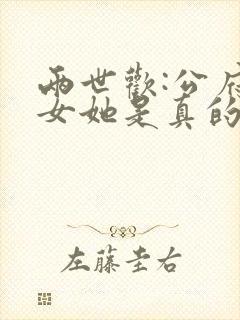 兩世歡:公府
女她是真的
左藤圭右